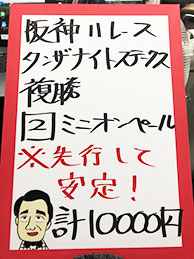 阪神11レース
タンザナイトステークス
複勝
2 ミニオンペール
※先行して
安定！
計10000円